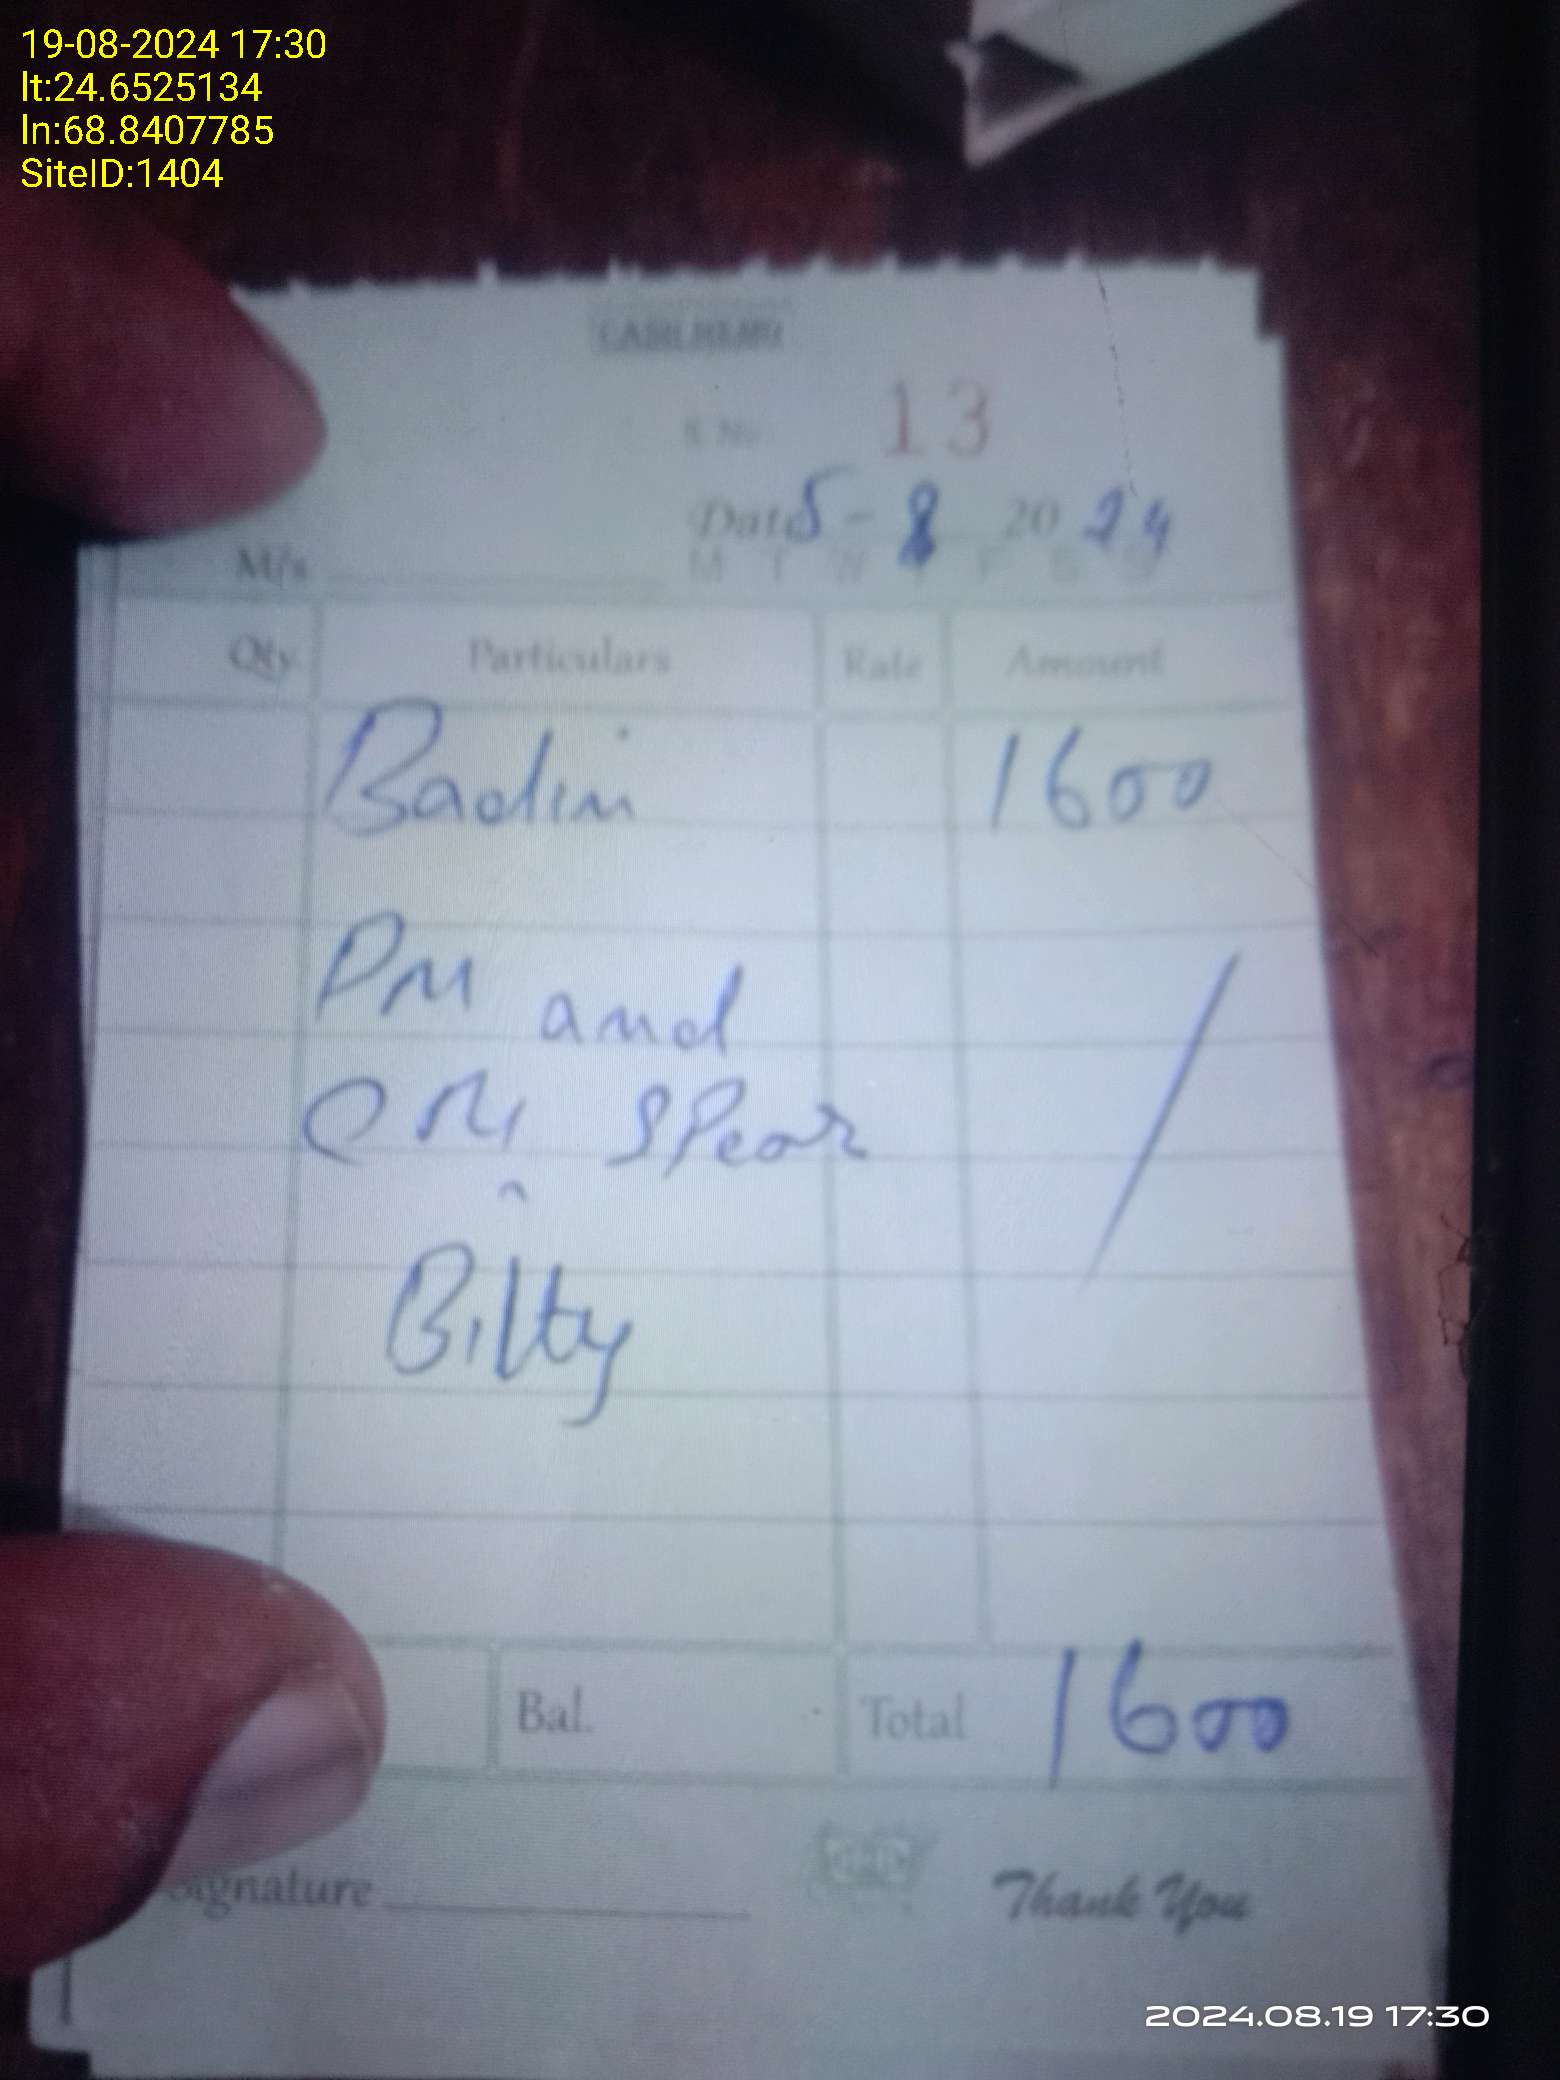 19-08-2024 17:30
lt:24.6525134
ln:68.8407785
SiteID:1404
CASH MEMO
S. No. 13
Date 5-8 2024
M/s
M T W T F S S
Qty. Particulars Rate Amount
Badin 1600
PM and
Spear
Bilty
Bal. Total 1600
Signature
Thank You
2024.08.19 17:30